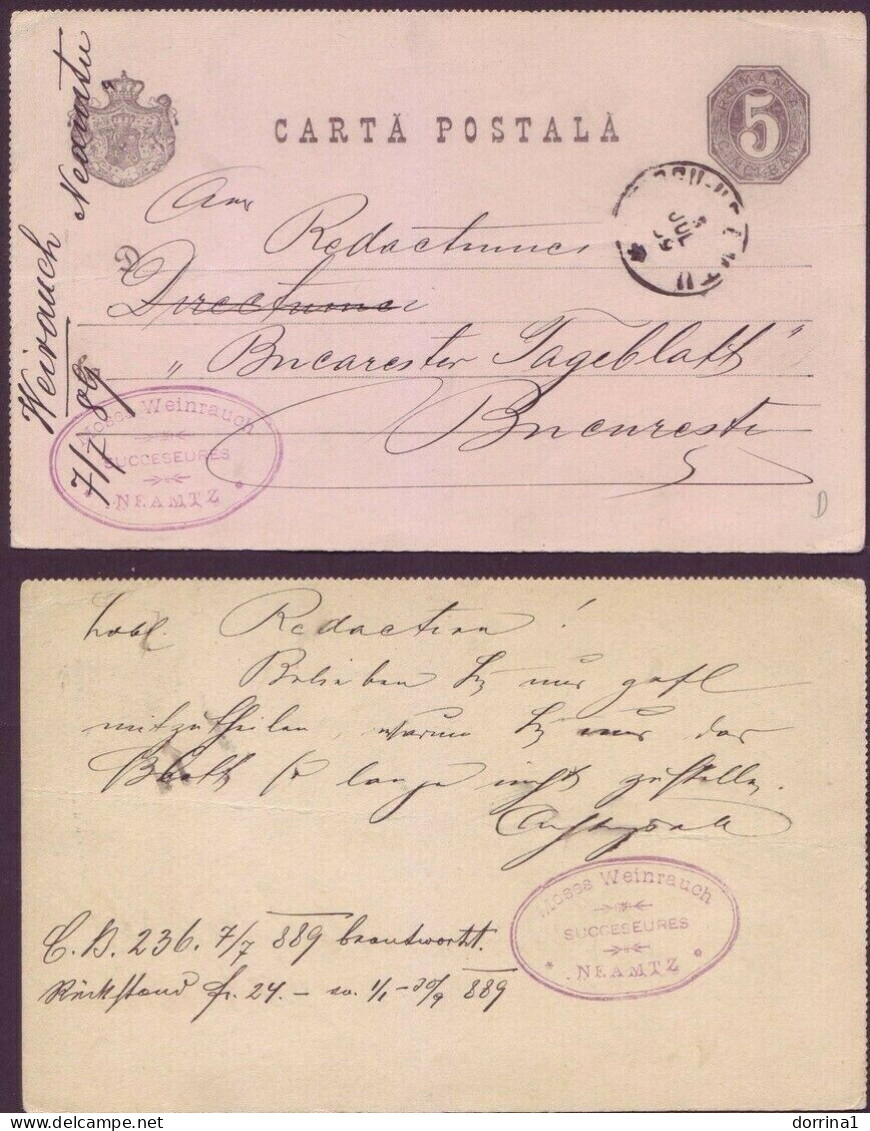 CARTĂ POSTALĂ
ROMANIA
5
CINCI BANI
JUL
89
Weirauch Neamtu
7/7 89
Redactiunei
Directiunei
„Bucarester Tageblatt"
Bucuresti
Moses Weinrauch
SUCCESEURES
NEAMTZ
D
Löbl. Redaction!
Belieben Sie mir gefl
mitzutheilen, warum Sie mir das
Blatt so lange nicht zustellen.
Achtungsvoll
Moses Weinrauch
SUCCESEURES
NEAMTZ
C. B. 236. 7/7 889 beantwortet.
Rückstand fr. 24.– 1/1 – 30/9 889
delcampe.net
dorrina1